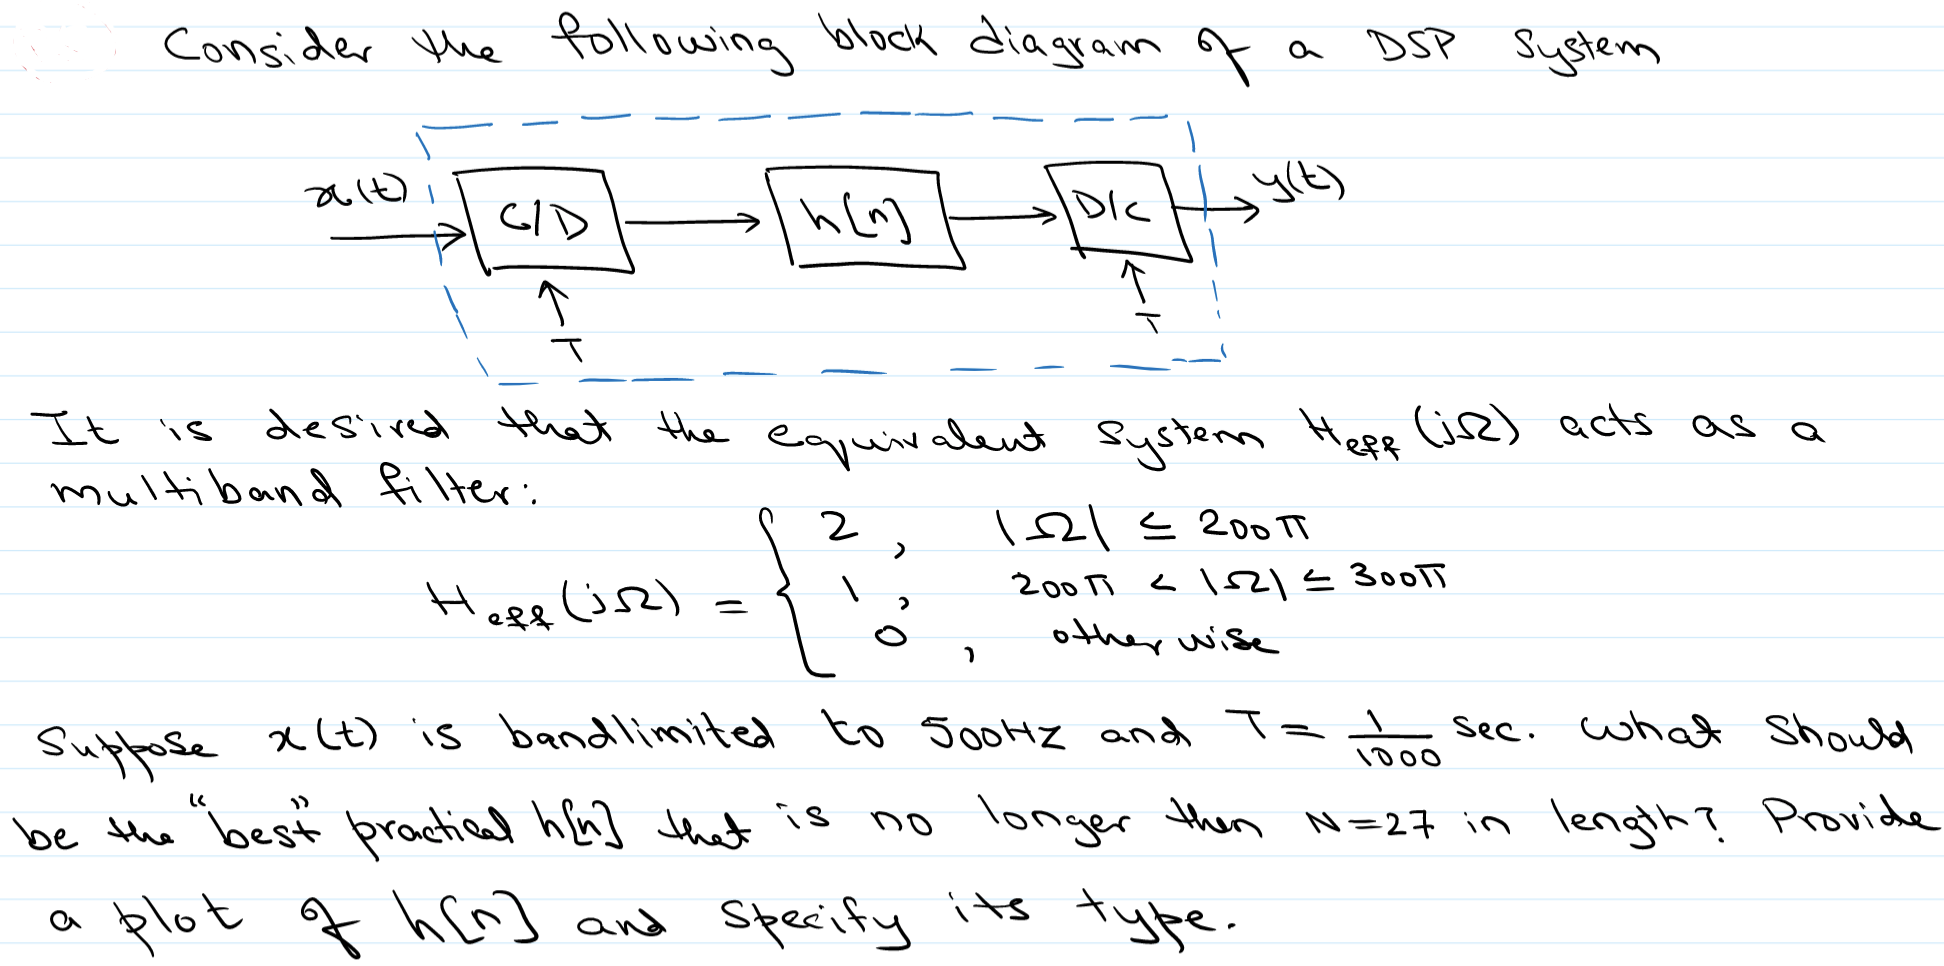 Consider the following block diagram of a DSP System
x(t)
C/D
h[n]
D/C
y(t)
T
T
It is desired that the equivalent system Heff(jΩ) acts as a
multiband filter:
Heff(jΩ) = { 2, |Ω| ≤ 200π
1, 200π < |Ω| ≤ 300π
0, otherwise
Suppose x(t) is bandlimited to 500Hz and T = 1/1000 sec. What should
be the "best" practical h[n] that is no longer then N=27 in length? Provide
a plot of h[n] and specify its type.